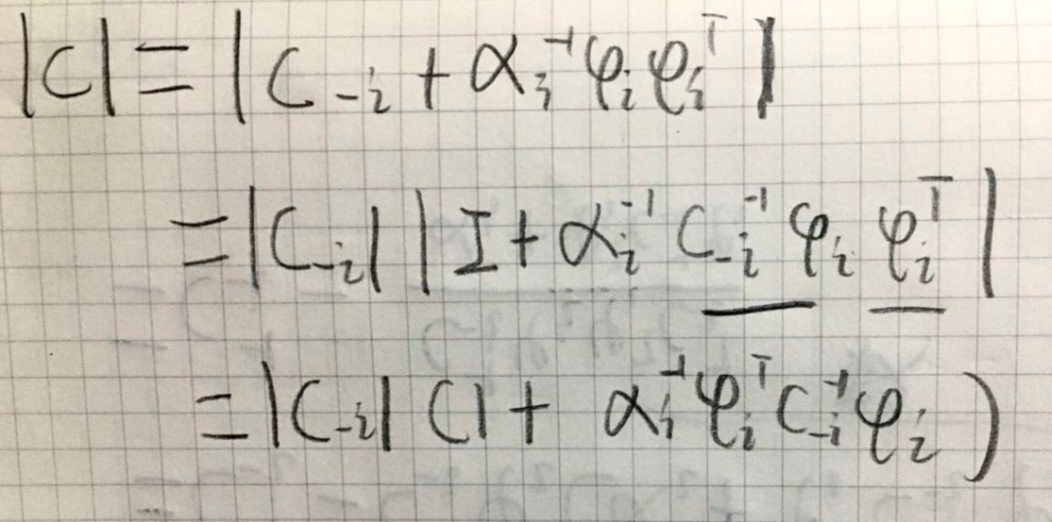 |C| = |C₋ᵢ + αᵢ⁻¹φᵢφᵢᵀ|
= |C₋ᵢ| |I + αᵢ⁻¹ C₋ᵢ⁻¹ φᵢ φᵢᵀ|
= |C₋ᵢ| (1 + αᵢ⁻¹φᵢᵀC₋ᵢ⁻¹φᵢ)